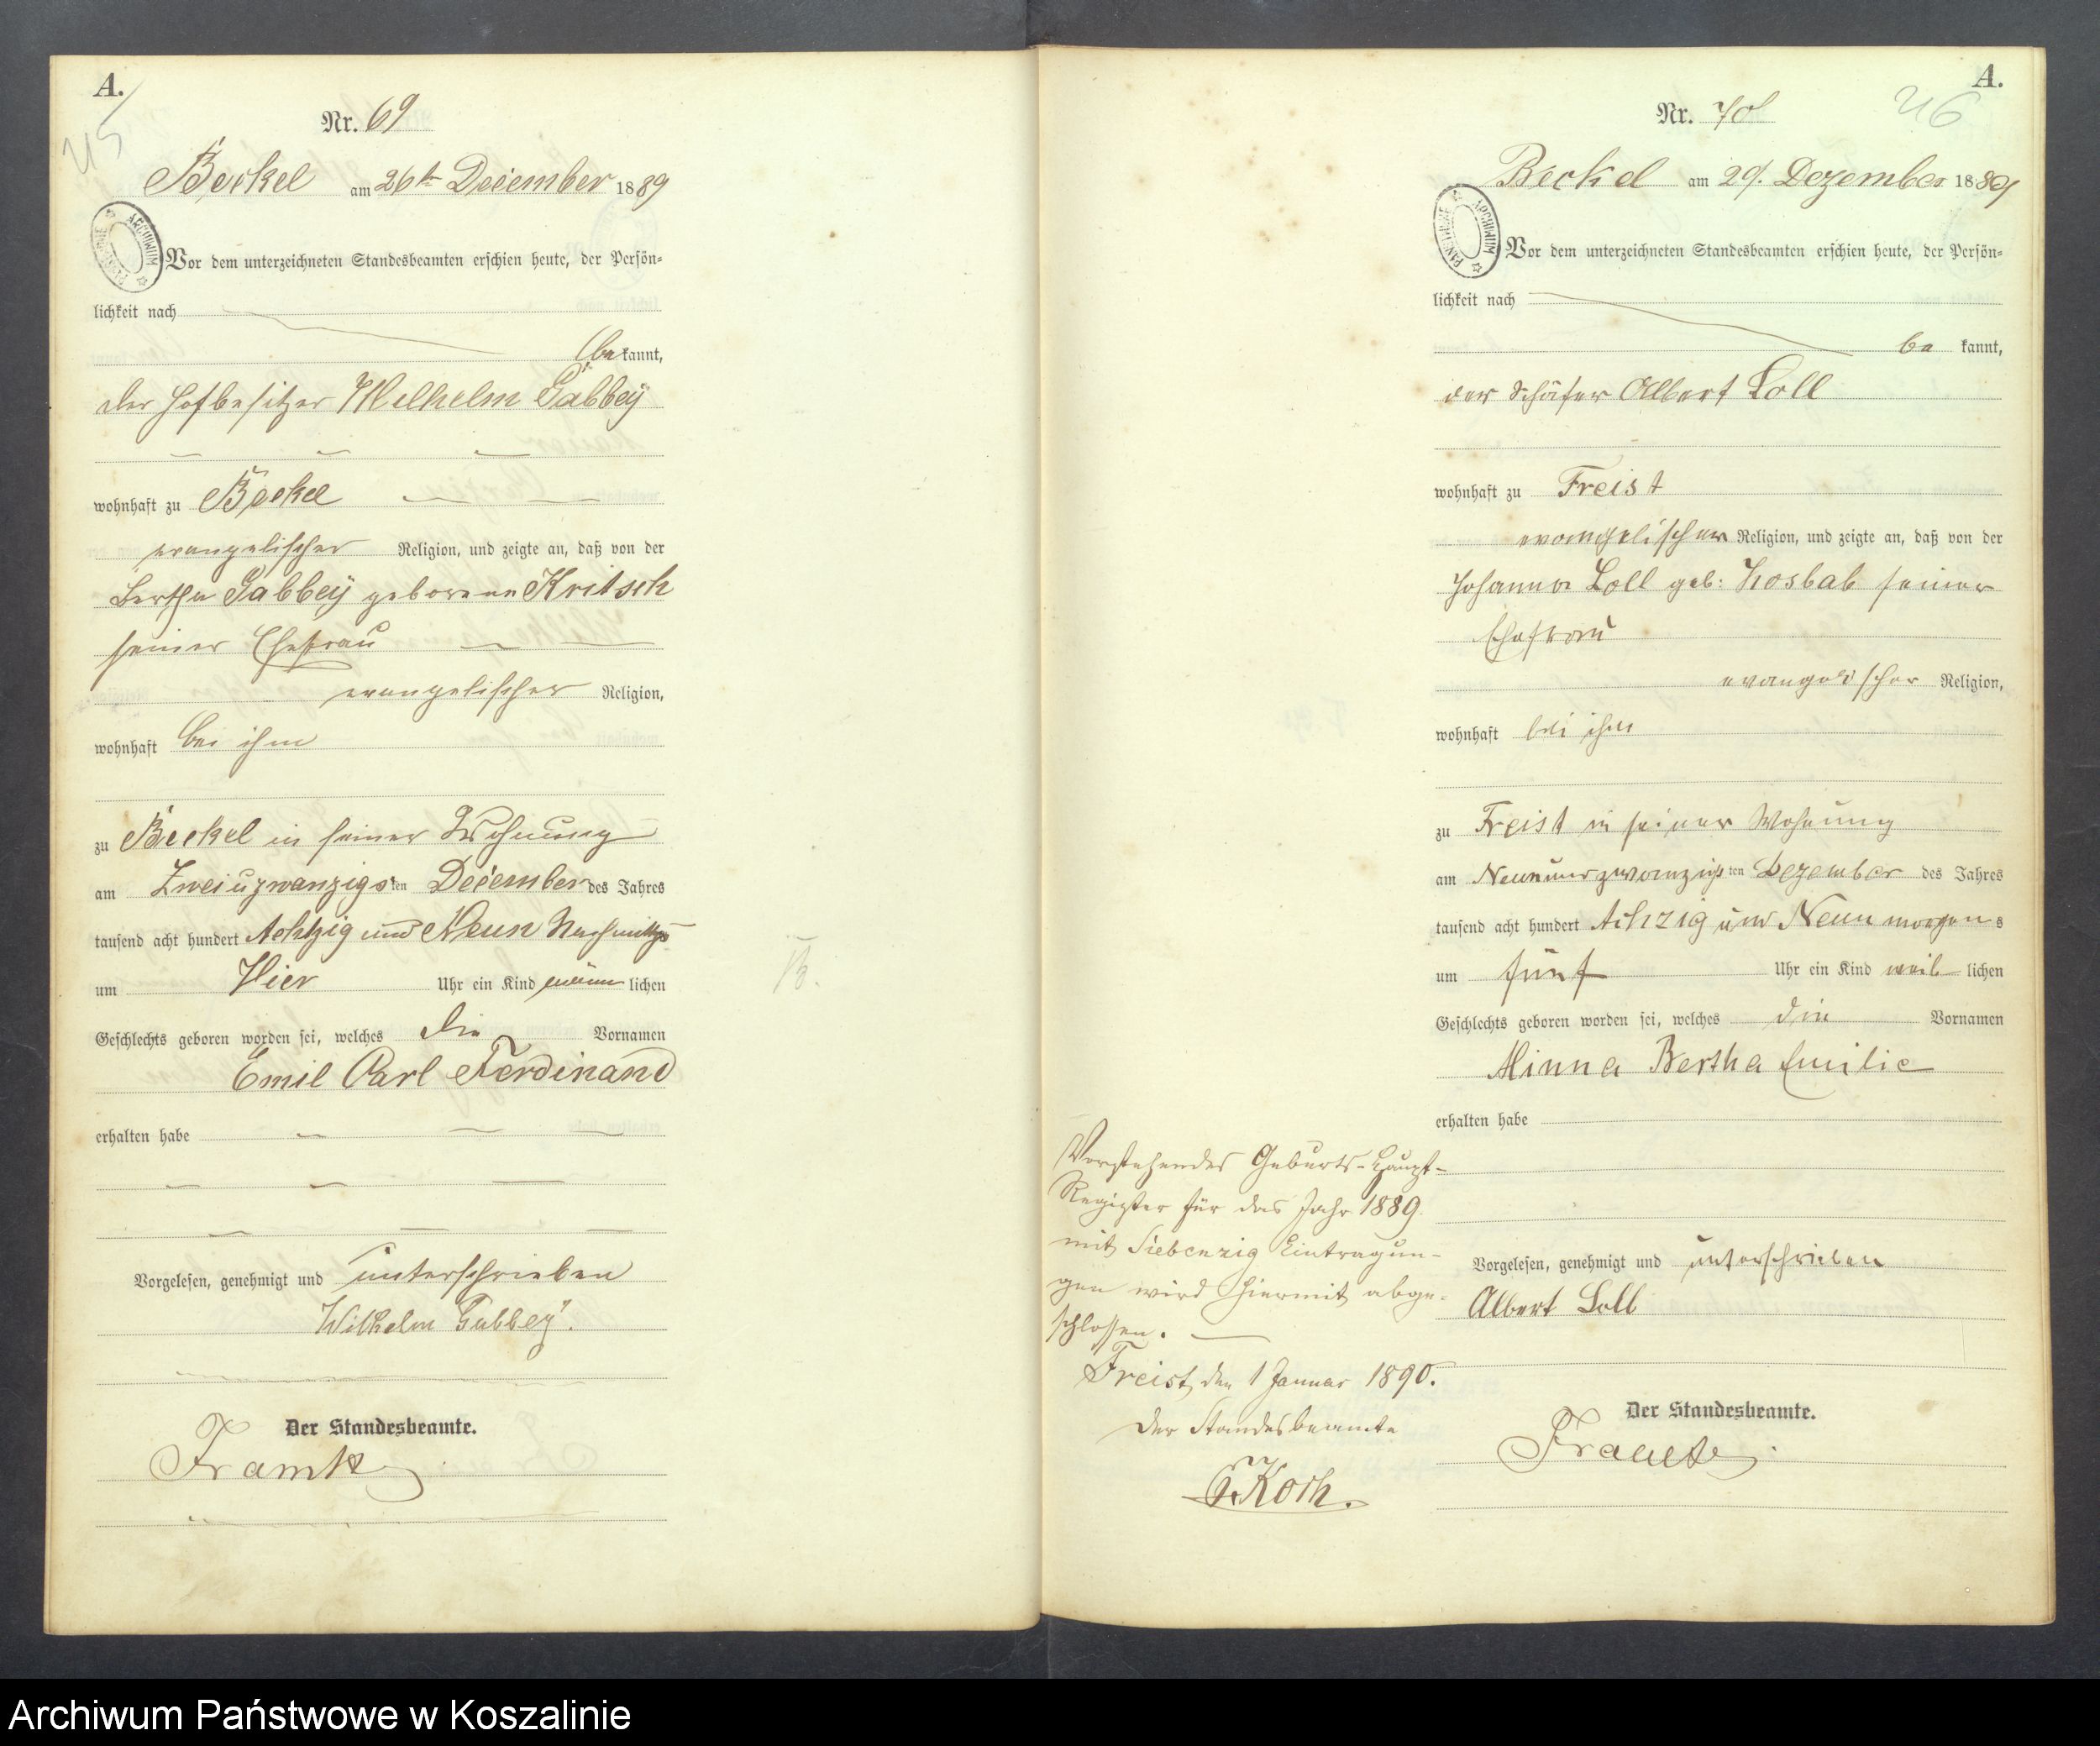 A.
45
Nr. 69
Beckel am 26ten December 1889
ARCHIWUM
Vor dem unterzeichneten Standesbeamten erschien heute, der Persön-
lichkeit nach
bekannt,
der Hofbesitzer Wilhelm Gabbey
wohnhaft zu Beckel
evangelischer Religion, und zeigte an, daß von der
Bertha Gabbey geborene Kritsch
seiner Ehefrau
evangelischer Religion,
wohnhaft bei ihm
zu Beckel in seiner Wohnung
am Zweiuzwanzigsten December des Jahres
tausend acht hundert Achtzig und Neun Nachmittags
um Vier Uhr ein Kind männlichen
Geschlechts geboren worden sei, welches die Vornamen
Emil Carl Ferdinand
erhalten habe
Vorgelesen, genehmigt und unterschrieben
Wilhelm Gabbey.
Der Standesbeamte.
A.
46
Nr. 70
Beckel am 29. Dezember 1889
PAŃSTWOWE ARCHIWUM
Vor dem unterzeichneten Standesbeamten erschien heute, der Persön-
lichkeit nach
be kannt,
der Schäfer Albert Loll
wohnhaft zu Freist
evangelischer Religion, und zeigte an, daß von der
Johanna Loll geb: Kosbab seiner
Ehefrau
evangelischer Religion,
wohnhaft bei ihm
zu Freist in seiner Wohnung
am Neunundzwanzigsten Dezember des Jahres
tausend acht hundert Achzig und Neun morgens
um fünf Uhr ein Kind weiblichen
Geschlechts geboren worden sei, welches die Vornamen
Minna Bertha Emilie
erhalten habe
Vorgelesen, genehmigt und unterschrieben
Albert Loll
Der Standesbeamte.
Vorstehendes Geburts-Haupt-
Register für das Jahr 1889
mit Siebenzig Eintragun-
gen wird hiermit abge-
schlossen.
Freist, den 1 Januar 1890.
Der Standesbeamte
Koch.
Archiwum Państwowe w Koszalinie